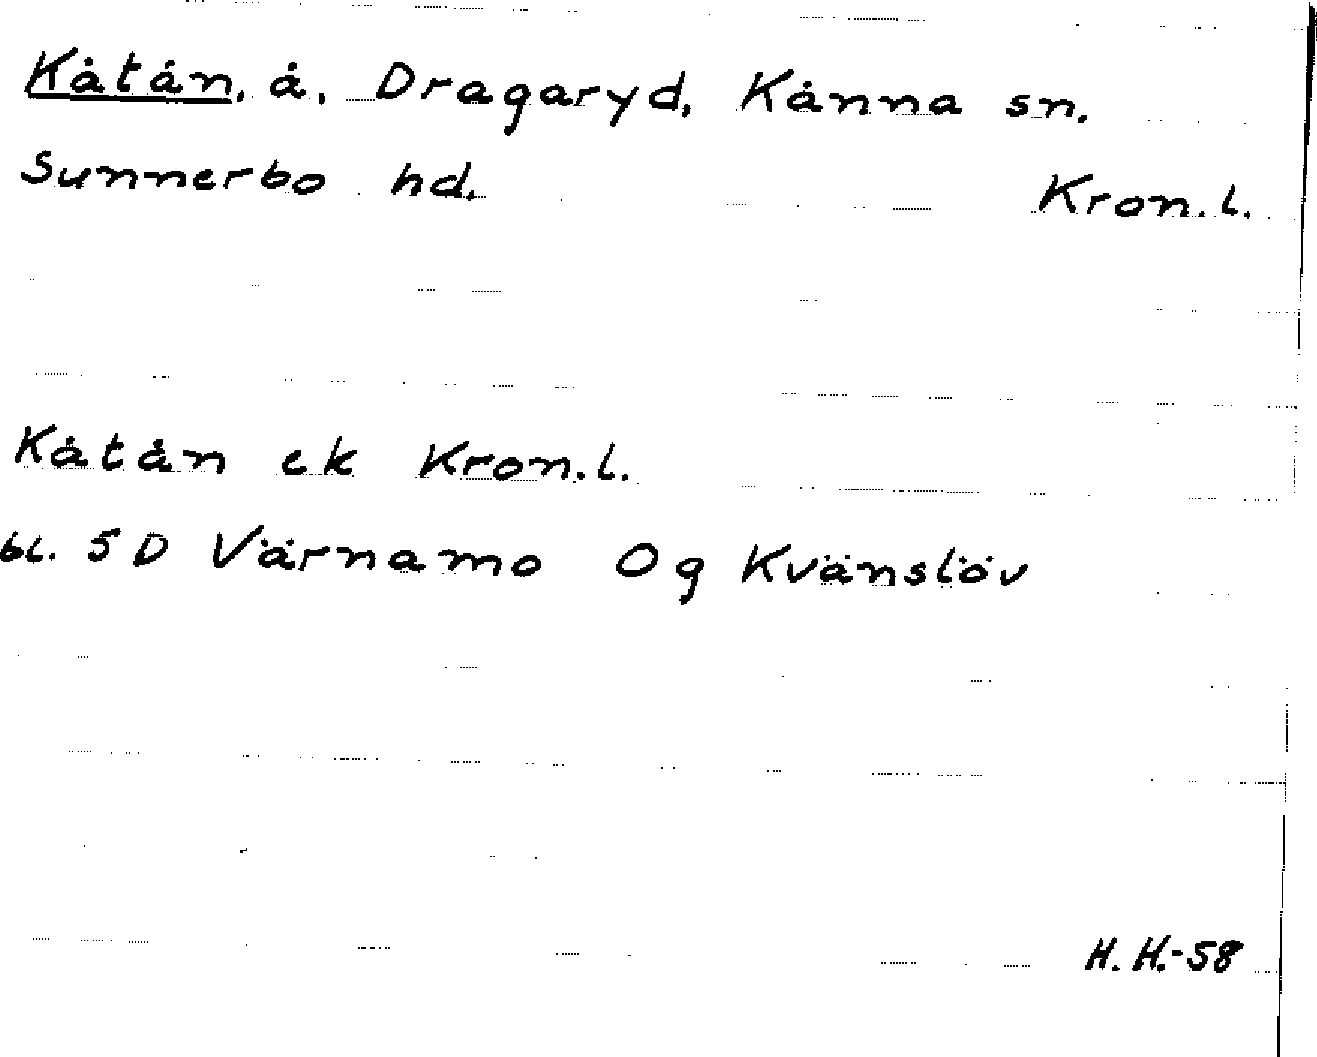 Kåtån, å, Dragaryd, Kånna sn.
Sunnerbo hd. Kron.l.
Kåtån ek Kron.l.
bl. 5 D Värnamo 0g Kvänslöv
H.H.-58